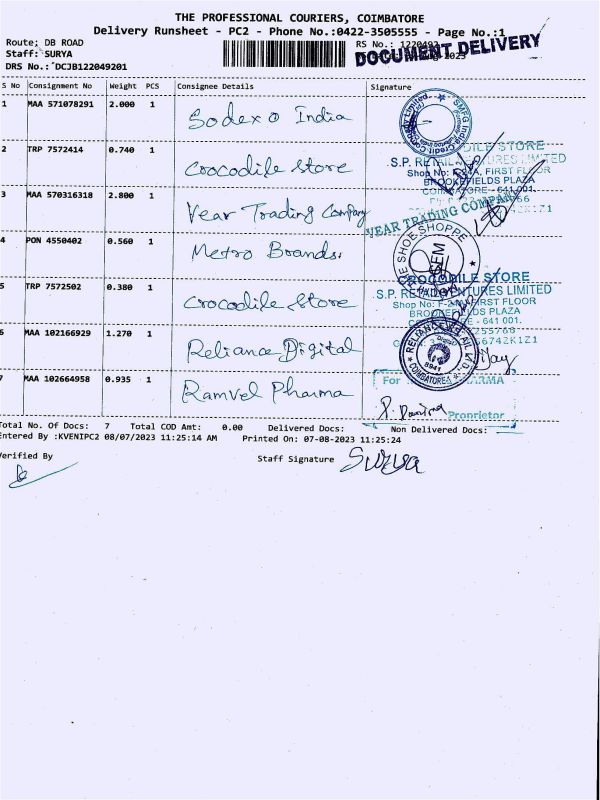 THE PROFESSIONAL COURIERS, COIMBATORE
Delivery Runsheet - PC2 - Phone No.:0422-3505555 - Page No.:1
Route: DB ROAD
RS No.: 1220492
Staff: SURYA
DOCUMENT DELIVERY
DRS No.: DCJB122049201
S No Consignment No Weight PCS Consignee Details Signature
1 MAA 571078291 2.000 1 Sodexo India
2 TRP 7572414 0.740 1 Crocodile Store
CROCODILE STORE
S.P. RETAIL VENTURES LIMITED
FIRST FLOOR
BROOKEFIELDS PLAZA
COIMBATORE - 641 001.
3 MAA 570316318 2.800 1 Vear Trading Company
VEAR TRADING COMPANY
4 PON 4550402 0.560 1 Metro Brands.
THE SHOE SHOPPE
5 TRP 7572502 0.380 1 Crocodile Store
CROCODILE STORE
S.P. RETAIL VENTURES LIMITED
FIRST FLOOR
BROOKEFIELDS PLAZA
641 001.
6 MAA 102166929 1.270 1 Reliance Digital
COIMBATORE
Vijay
7 MAA 102664958 0.935 1 Ramvel Pharma
For PHARMA
Proprietor
Total No. Of Docs: 7 Total COD Amt: 0.00 Delivered Docs: Non Delivered Docs:
Entered By :KVENIPC2 08/07/2023 11:25:14 AM Printed On: 07-08-2023 11:25:24
Verified By
Staff Signature Surya